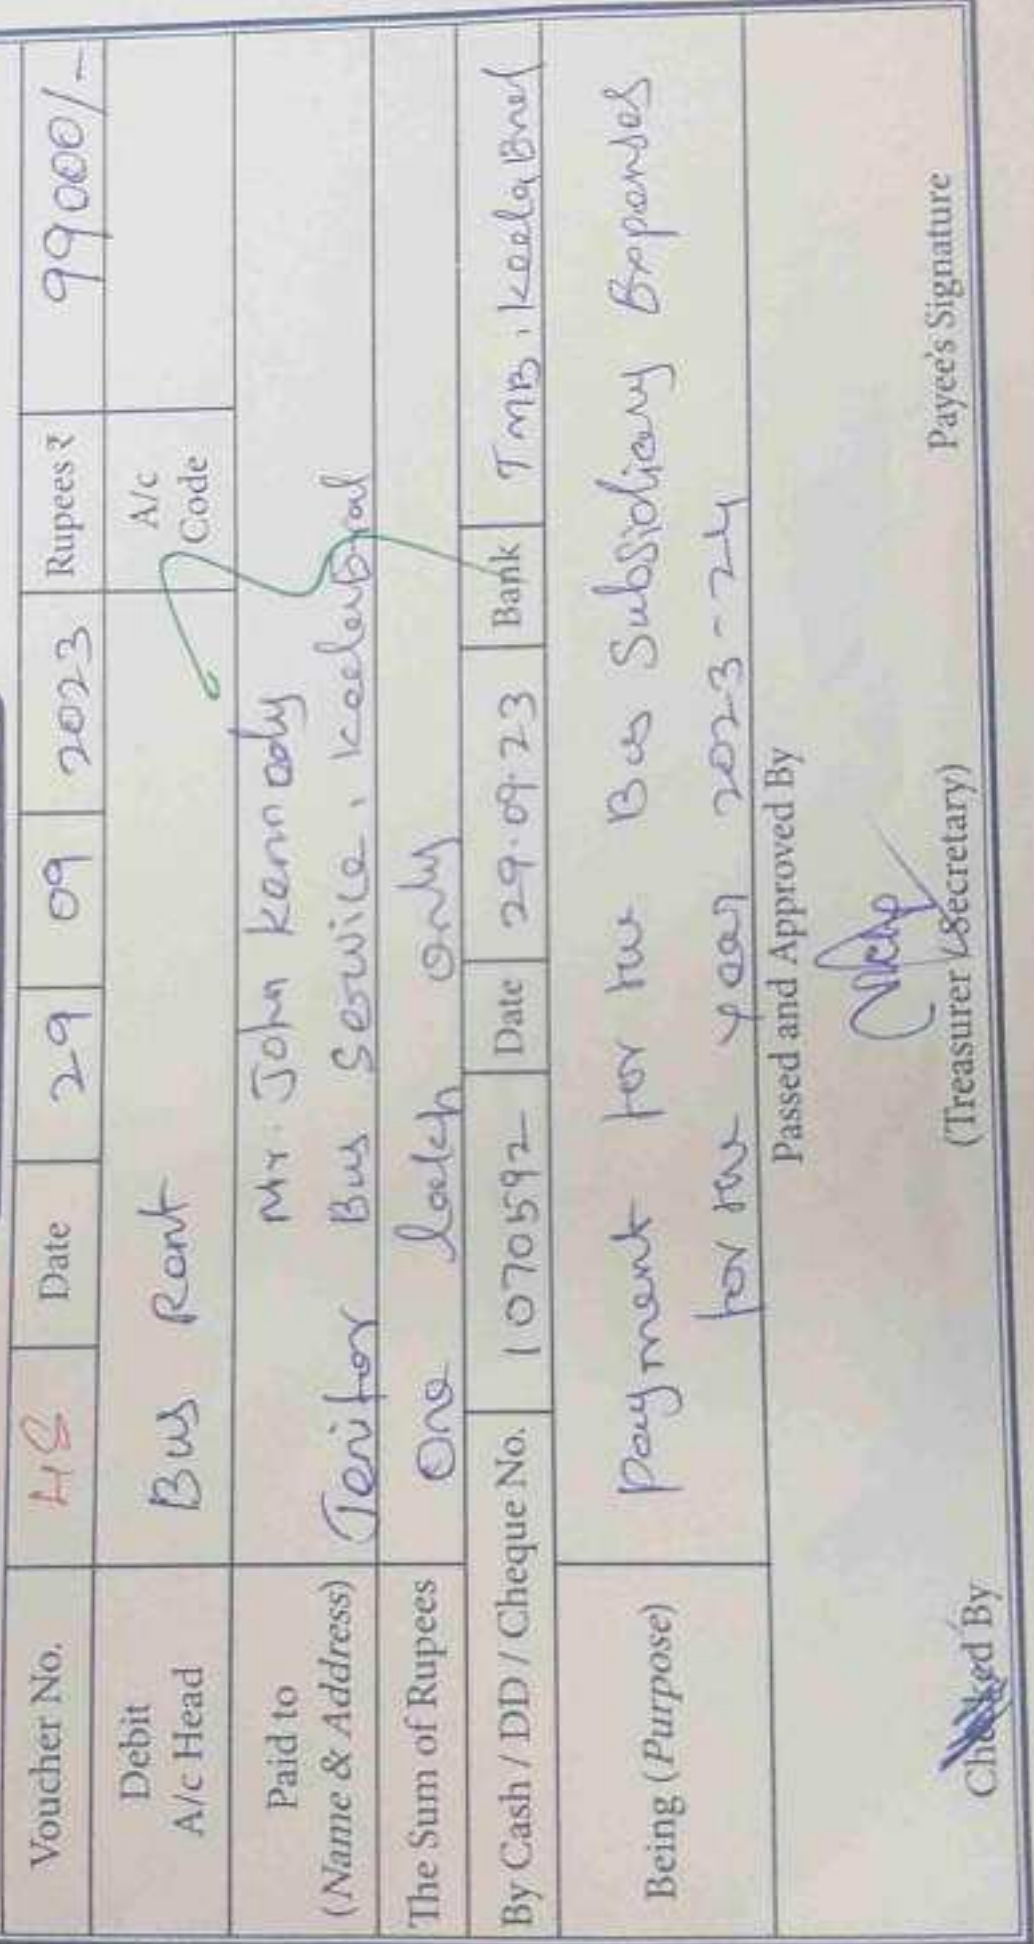 Voucher No. 48 Date 29 09 2023 Rupees ₹ 99000/-
Debit A/c Head Bus Rent A/c Code
Paid to Mr. John Kennady
(Name & Address) Jenifor Bus Service,
The Sum of Rupees One lakh only
By Cash / DD / Cheque No. 1070592 Date 29.09.23 Bank TMB,
Being (Purpose) Payment for the Bus Subsidiary Expenses
for the year 2023-24
Passed and Approved By
Checked By (Treasurer / Secretary) Payee's Signature